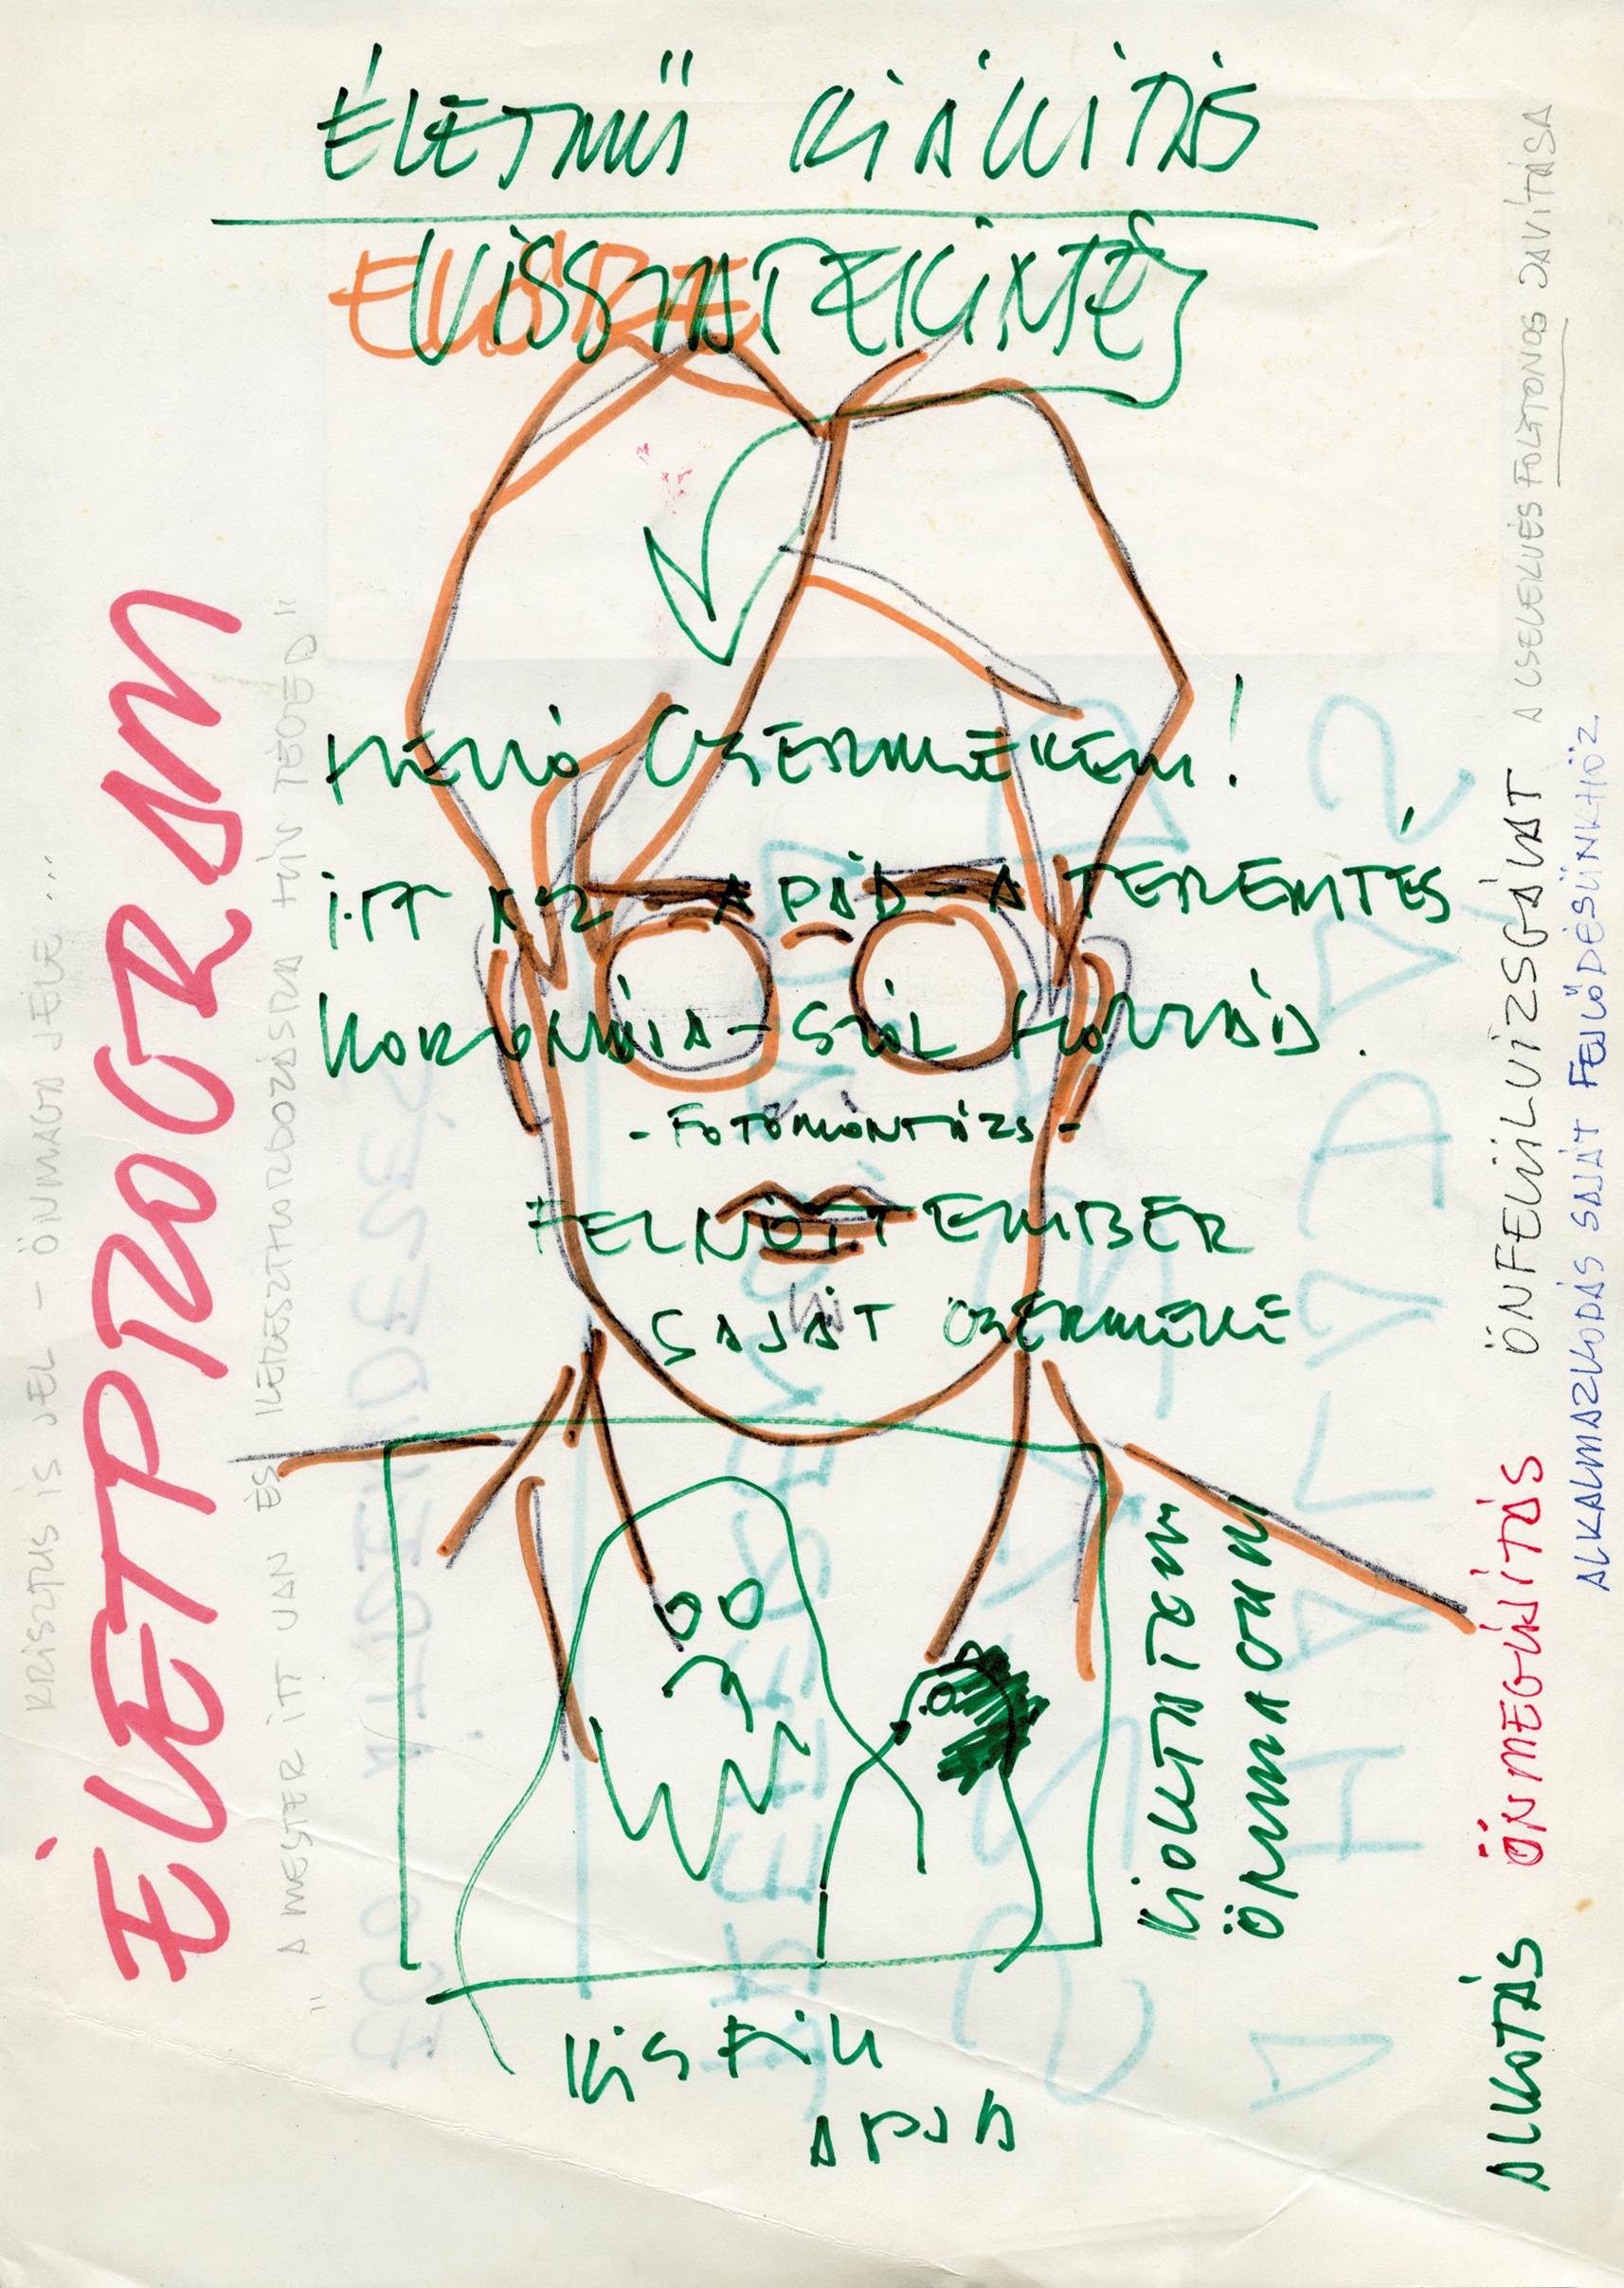 ÉLETMŰ KIÁLLITÁS
ELŐRE
VISSZATEKINTÉS
HELLÓ GYERMEKEM!
ITT AZ APÁD - A TEREMTÉS
KORONÁJA - SZÓL HOZZÁD.
- FOTÓMONTÁZS -
FELNŐTT EMBER
SAJÁT GYERMEKE
KIOKTATOM
ÖNMAGAM
KISFIU
APJA
KRISZTUS IS JEL - ÖNMAGA JELE...
ÉLETPROGRAM
"A MESTER ITT VAN ÉS HÍV TÉGED"
ALKOTÁS ÖNMEGÚJÍTÁS ÖNFELÜLVIZSGÁLAT A CSELEKVÉS FOLYTONOS JAVÍTÁSA
ALKALMAZKODÁS SAJÁT FEJLŐDÉSÜNKHÖZ